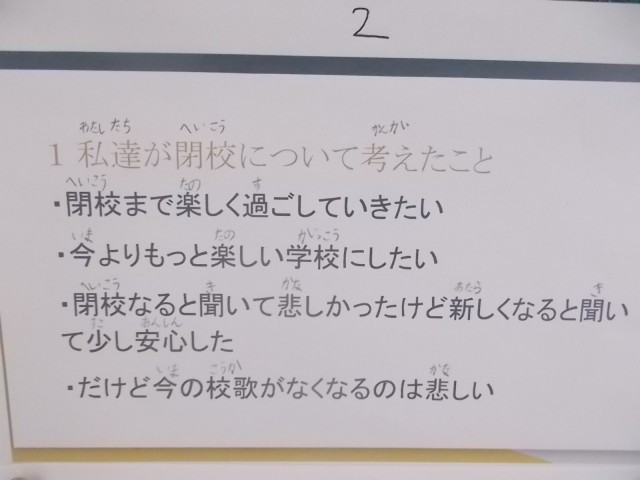 2
わたし たち へいこう かんがい
1 私達が閉校について考えたこと
へいこう たの す
・閉校まで楽しく過ごしていきたい
いま たの がっこう
・今よりもっと楽しい学校にしたい
へいこう き かな あたら き
・閉校なると聞いて悲しかったけど新しくなると聞い
すこ あんしん
て少し安心した
いま こうか かな
・だけど今の校歌がなくなるのは悲しい